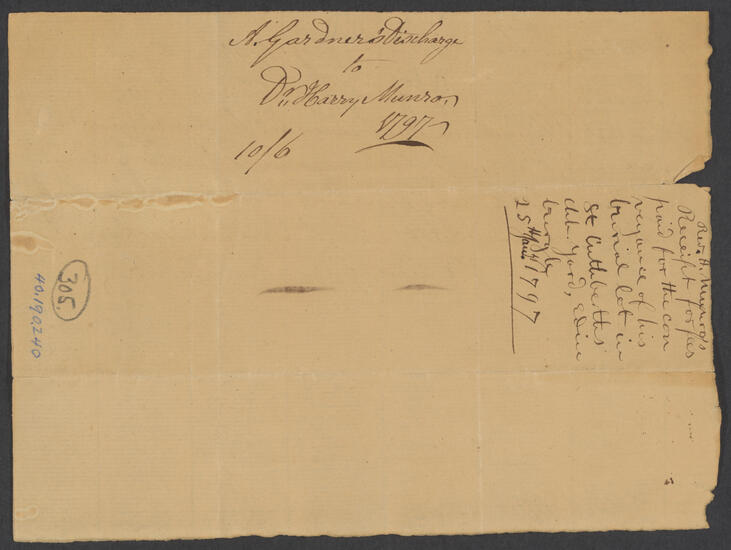 A. Gardner's Discharge
to
Dr. Harry Munro,
1797
10/6
Rev. H. Munro's
Receipt for fees
paid for the con
veyance of his
burial lot in
St Cuthbert's
chh. Yard, Edin
burgh
25th 1797
305.
40.190.240